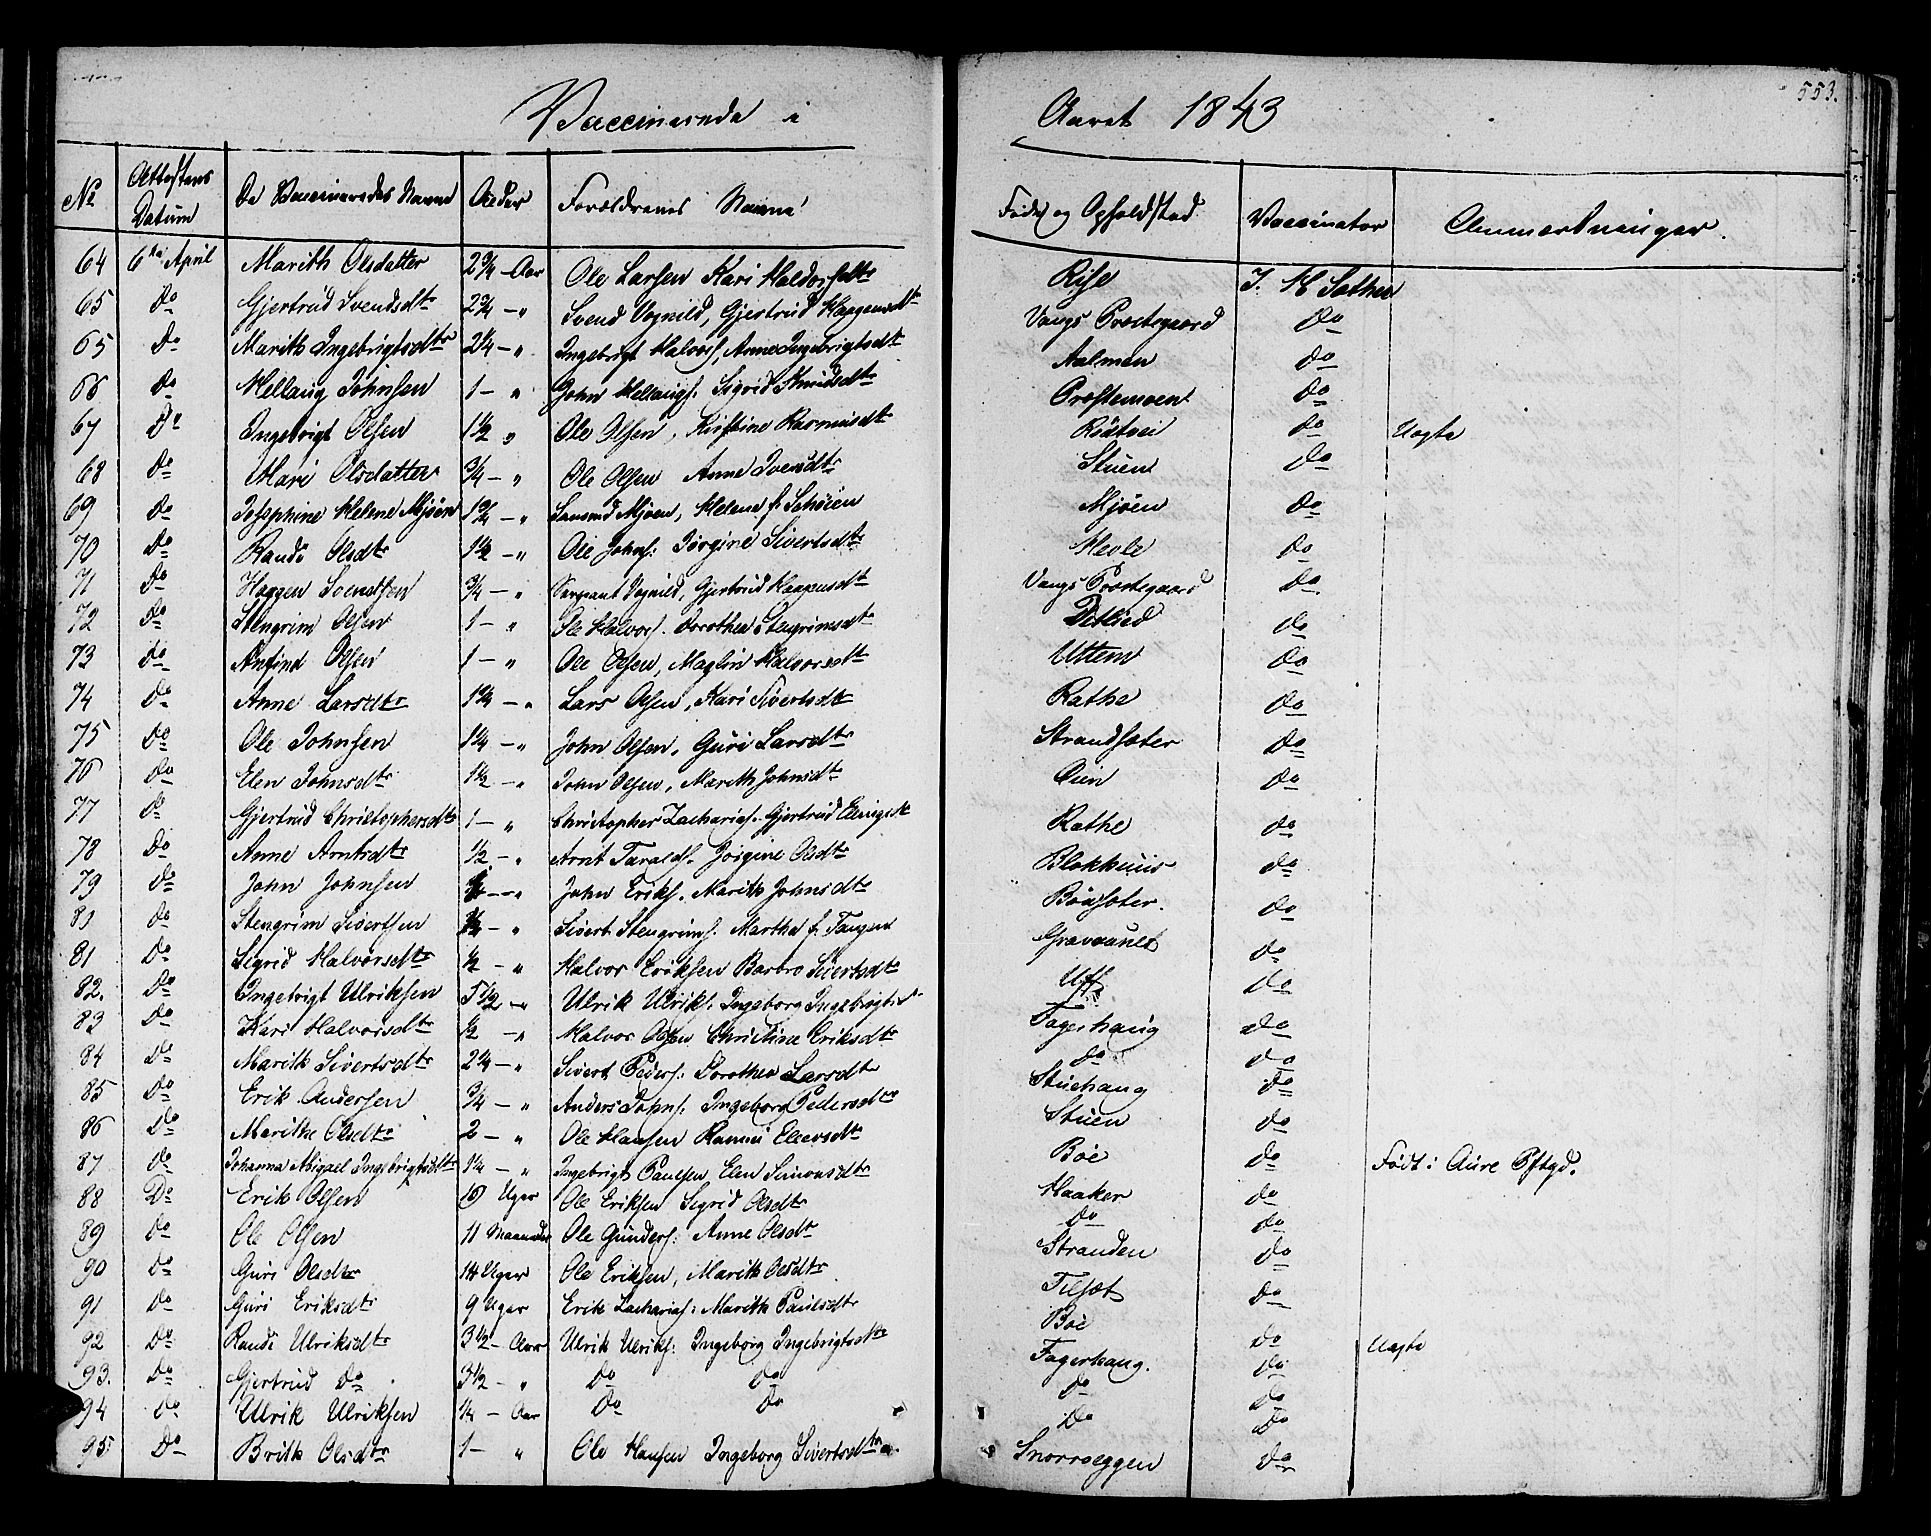 553.
Vaccinerede i Aaret 1843
No Attestens Datum De Vaccineredes Navne Alder Forældrenes Navne Føde og Opholdsted Vaccinator Anmærkninger.
64 6te April Marith Olsdatter 2 3/4 - Aar Ole Larsen Kari Haldorsdtr Rise J. H. Sæther
65 Do Gjertrud Svendsdtr 2 3/4 - " Svend Vognild, Gjertrud Haagensdtr Vangs Præstegaard Do
65 Do Marith Ingebrigtsdtr 2 1/4 - " Ingebrigt Halvors. Anne Ingebrigtsdtr Aalmen Do
66 Do Mellaug Johnsen 1 - " John Mellaugs. Sigrid Knudsdtr Præstemoen Do
67 Do Ingebrigt Olsen 1 1/2 " Ole Olsen, Kirstine Rasmusdtr Rødtvei Do Uægte
68 Do Mari Olsdatter 3/4 - " Ole Olsen Anne Iversdtr Stuen Do
69 Do Josephine Helene Mjøen 1 3/4 - " Mjøen, Helene f. Schøien Mjøen Do
70 Do Randi Olsdtr 1 1/2 - " Ole Johns: Jørgine Sivertsdtr Hevle Do
71 Do Haagen Svendsen 3/4 - " Sergeant Vognild, Gjertrud Haagensdtr Vangs Præstegaard Do
72 Do Stengrim Olsen 1 - " Ole Halvors. Dorothea Stengrimsdtr Detlied Do
73 Do Anfind Olsen 1 - " Ole Olsen, Magli Halvorsdtr Uttem Do
74 Do Anne Larsdtr 1 1/4 - " Lars Olsen, Kari Sivertsdtr Rathe Do
75 Do Ole Johnsen 1 1/4 - " John Olsen, Guri Larsdtr Strandsæter Do
76 Do Elen Johnsdtr 1 1/2 - " John Olsen, Marith Johnsdtr Oien Do
77 Do Gjertrud Christophersdtr 1 - " Christopher Zacharias. Gjertrud Elingsdtr Rathe Do
78 Do Anne Arntsdtr 1/2 - " Arnt Taralds. Jørgine Olsdtr Blokhuus Do
79 Do John Johnsen - " John Eriks. Marith Johnsdtr Böesæter. Do
80 Do Stengrim Sivertsen - " Sivert Stengrims. Martha f. Tangen Gravaunet Do
81 Do Sigrid Halvorsdtr 1/2 - " Halvor Eriksen Barbro Sivertsdtr Uff Do
82. Do Ingebrigt Ulriksen 5 1/2 - " Ulrik Ulriks: Ingeborg Ingebrigtsd Fagerhaug Do
83 Do Kari Halvorsdtr 1/2 - " Halvor Olsen Christine Eriksdtr Do Do
84 Do Marith Sivertsdtr 2 1/4 - " Sivert Peders: Dorothea Larsdtr Stuehaug Do
85 Do Erik Andersen 3/4 - " Anders Johns: Ingeborg Pedersdtr Stuen Do
86 Do Marithe Olsdtr 2 - " Ole Hansen Elevsdtr Böe Do Født i Aure Pstgd.
87 Do Johanna Abigael Ingebrigtsdtr 1 1/4 - " Ingebrigt Paulsen, Elen Simonsdtr Haaker Do
88 Do Erik Olsen 10 Uger Ole Eriksen Sigrid Olsdtr Do Do
89 Do Ole Olsen 11 Maaneder Ole Gunders: Anne Olsdtr Stranden Do
90 Do Guri Olsdtr 14 Uger Ole Eriksen, Marith Olsdtr Tilset Do
91 Do Guri Eriksdtr 9 Uger Erik Zacharias: Marith Paulsdtr Böe Do
92 Do Randi Ulriksdtr 3 1/2 - Aar Ulrik Ulriks: Ingeborg Ingebrigtsdtr Fagerhaug. Do Uægte
93. Do Gjertrud Do 3 1/2 - " Do Do Do Do
94 Do Ulrik Ulriksen 1/4 - Aar Do Do Do Do
95 Do Brith Olsdtr 1 - " Ole Hansen Ingeborg Sivertsdtr Snorroeggen Do